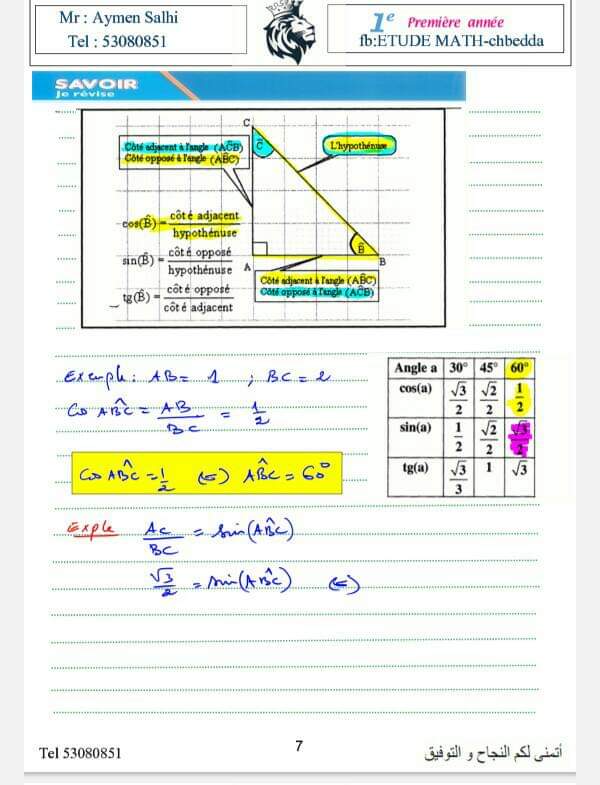 Mr : Aymen Salhi
Tel : 53080851
1e Première année
fb:ETUDE MATH-chbedda
SAVOIR
Je révise
C
Côté adjacent à l'angle (AĈB)
Côté opposé à l'angle (AB̂C)
Ĉ
L'hypothénuse
cos(B̂) = côté adjacent / hypothénuse
sin(B̂) = côté opposé / hypothénuse
tg(B̂) = côté opposé / côté adjacent
A
B̂
B
Côté adjacent à l'angle (AB̂C)
Côté opposé à l'angle (AĈB)
Exemple: AB = 1 ; BC = 2
Cos AB̂C = AB / BC = 1/2
Cos AB̂C = 1/2 (=) AB̂C = 60°
Angle a 30° 45° 60°
cos(a) √3/2 √2/2 1/2
sin(a) 1/2 √2/2 √3/2
tg(a) √3/3 1 √3
Exple AC / BC = sin(AB̂C)
√3/2 = sin(AB̂C) (=)
Tel 53080851
7
أتمنى لكم النجاح و التوفيق